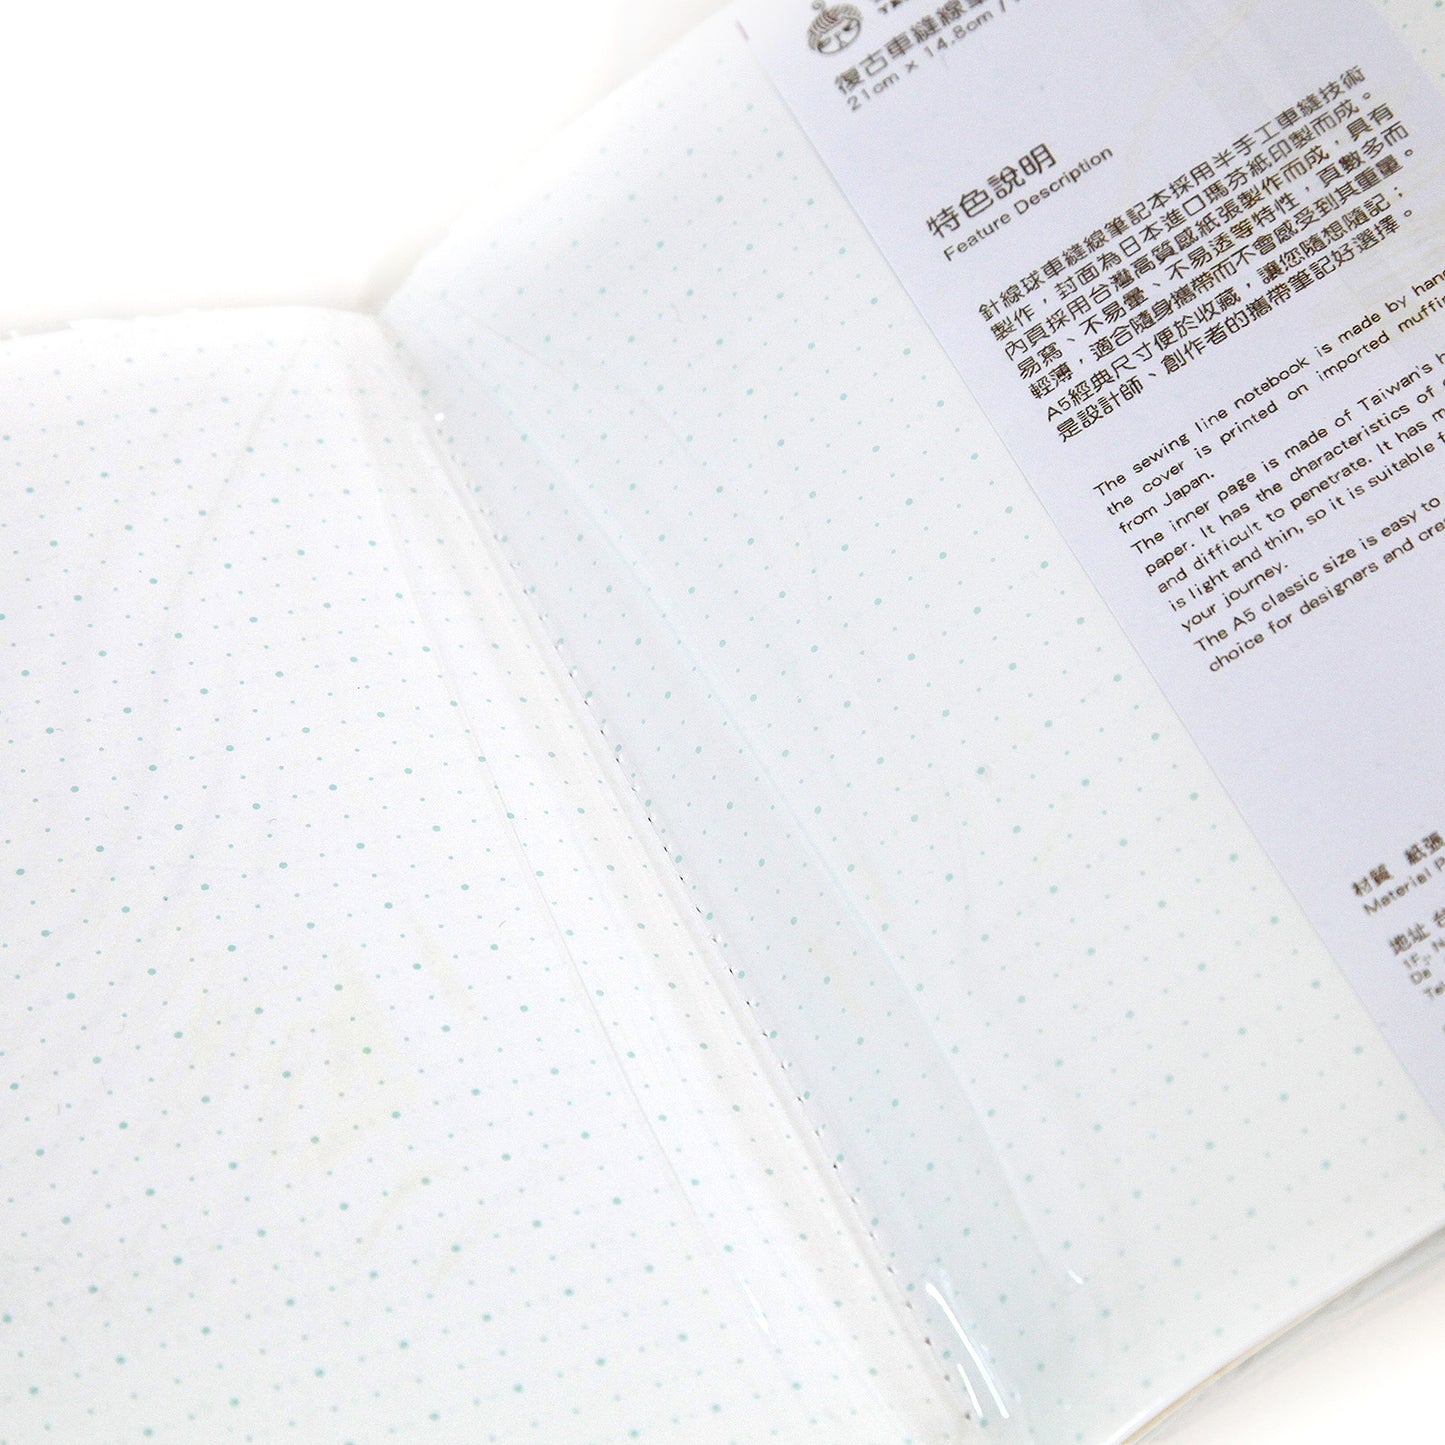 復古車縫線筆
21cm × 14.8cm /
特色說明
Feature Description
針線球車縫線筆記本採用半手工車縫技術
製作，封面為日本進口瑪芬紙印製而成。
內頁採用台灣高質感紙張製作而成，具有
易寫、不易暈、不易透等特性，頁數多而
輕薄，適合隨身攜帶而不會感受到其重量。
A5經典尺寸便於收藏，讓您隨想隨記；
是設計師、創作者的攜帶筆記好選擇。
The sewing line notebook is made by han
the cover is printed on imported muffi
from Japan.
The inner page is made of Taiwan's h
paper. It has the characteristics of
and difficult to penetrate. It has m
is light and thin, so it is suitable f
your journey.
The A5 classic size is easy to
choice for designers and cre
材質 紙張
Material P
地址
1F., N
Da
Tel